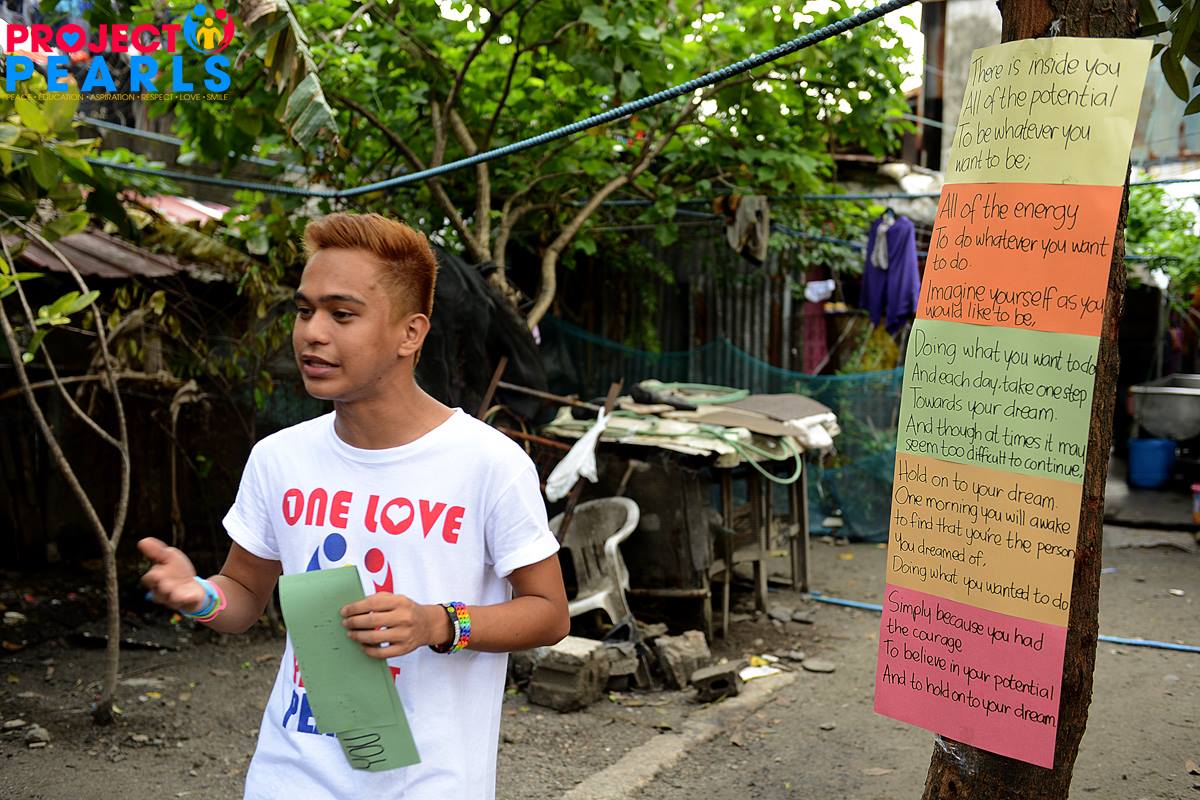 PROJECT
PEARLS
PEACE • EDUCATION • ASPIRATION • RESPECT • LOVE • SMILE
ONE LOVE
PE
There is inside you
All of the potential
To be whatever you
want to be;
All of the energy
To do whatever you want
to do.
Imagine yourself as you
would like to be,
Doing what you want to do
And each day, take one step
Towards your dream.
And though at times it may
seem too difficult to continue,
Hold on to your dream.
One morning you will awake
to find that you're the person
you dreamed of,
Doing what you wanted to do
Simply because you had
the courage
To believe in your potential
And to hold on to your dream